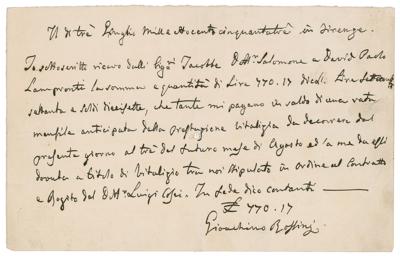 Il dì trè Luglio Mille Ottocento cinquantatrè in Firenze.
Io sottoscritto ricevo dalli Sig.ri Jacobbe D.r Salomone e David Paolo
Lampronti la somma e quantità di Lire 770.17 dico Lire Settecento
settanta e soldi diecisette, che tante mi pagano in saldo di una rata
mensile anticipata della prestazione vitalizia da decorrere dal
presente giorno al trè del futuro mese di Agosto ed a me da essi
dovuta a titolo di Vitalizio tra noi stipulato in ordine al Contratto
a Rogito del D.r Luigi In fede dico contanti
£ 770.17
Gioachino Rossini